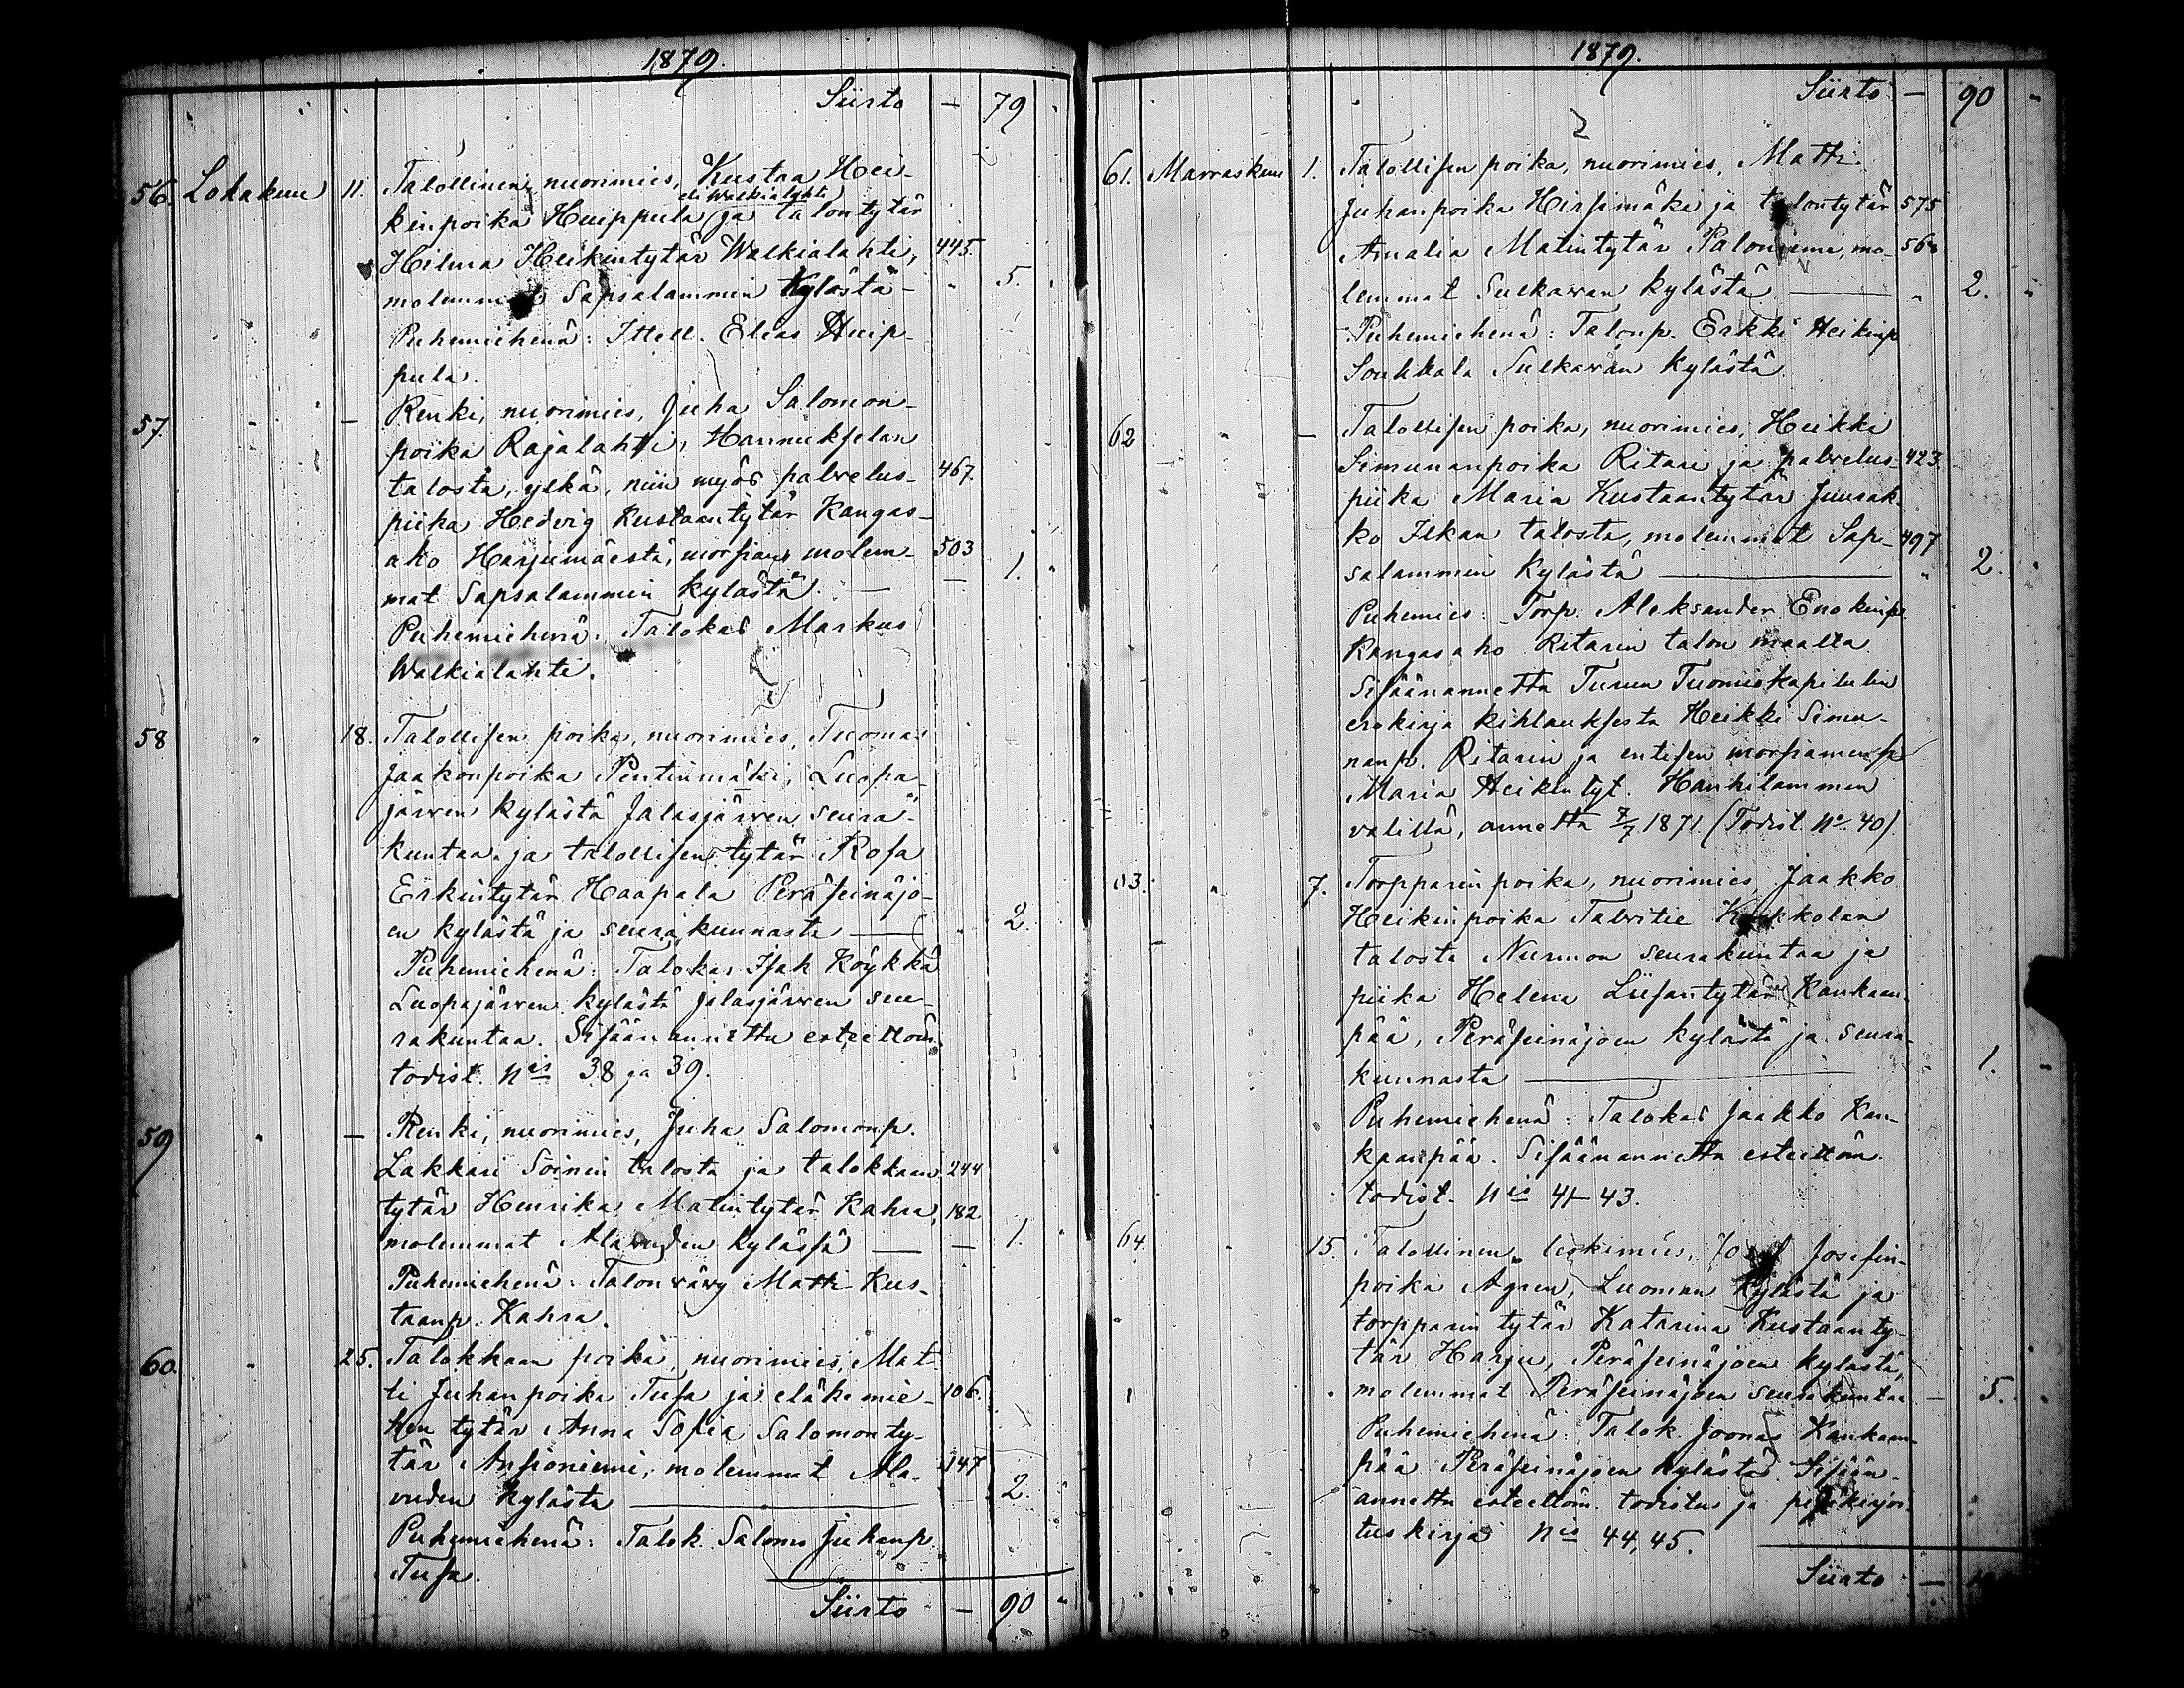 1879.
Siirto — 79
56. Lokakuu 11. Talollinen, nuorimies, Kustaa Hei-
eli Walkialahti
kinpoika Huippula ja talontytär
Hilma Heikintytär Walkialahti, 445.
molemmat Sapsalammin kylästä - " 5.
Puhemiehenä: Ittell. Elias Huip-
pula.
57. " — Renki, nuorimies, Juha Salomon-
poika Rajalahti, Hannukselan
talosta, ylkä, niin myös palvelus- 467.
piika Hedvig Kustaantytär Kangas-
aho Harjumäestä, morsian, molem- 503
mat Sapsalammin kylästä. — — 1.
Puhemiehenä: Talokas Markus
Walkialahti.
58 " 18. Talollisen poika, nuorimies, Tuomas
Jaakonpoika Pentinmäki, Luopa-
järwen kylästä Jalasjärwen seura-
kuntaa ja talollisen tytär Rosa
Erkintytär Haapala Peräseinäjo-
en kylästä ja seurakunnasta — " 2.
Puhemiehenä: Talokas Isak Köykkä
Luopajärwen kylästä Jalasjärwen seu-
rakuntaa. Sisäänannettu esteettöm.
todist. Nis 38 ja 39.
59 " — Renki, nuorimies, Juha Salomonp.
Lakkari Soinin talosta ja talokkaan 244
tytär Henrika Matintytär Kahra, 182
molemmat Alavuden kylässä — — 1.
Puhemiehenä: Talon vävy Matti Kus-
taanp. Kahra.
60. " 25. Talokkaan poika, nuorimies, Mat-
ti Juhanpoika Tusa ja eläkemie- 106.
hen tytär Anna Sofia Salomonty-
tär Ansioniemi, molemmat Ala- 147
vuden kylästä — 2.
Puhemiehenä: Talok. Salomo Juhanp.
Tusa.
Siirto — 90
1879.
Siirto — 90
61. Marraskuu 1. Talollisen poika, nuorimies, Matti
Juhanpoika Hirsimäki ja talontytär 575
Amalia Matintytär Paloniemi, mo-
lemmat Sulkavan kylästä — " 2.
Puhemiehenä: Talonp. Erkki Heikinp
Soukkala Sulkavan kylästä.
62 " — Talollisen poika, nuorimies, Heikki
Simunanpoika Ritari ja palvelus- 423.
piika Maria Kustaantytär Juurak-
ko Ilkan talosta, molemmat Sap- 497
salammin kylästä — " 2.
Puhemies: Torp. Aleksander Enokinp.
Kangasaho Ritarin talon maalta
Sisäänannettu Turun Tuomiokapitulin
erokirja kihlauksesta Heikki Simu-
nanp. Ritarin ja entisen morsiamensa
Maria Heikintyt. Hanhilammen
välillä, annettu 7/7 1871. (Todist. No 40).
63. " 7. Torpparin poika, nuorimies, Jaakko
Heikinpoika Talvitie Kokkolan
talosta Nurmon seurakuntaa ja
piika Helena Liisantytär Kankaan-
pää, Peräseinäjoen kylästä ja seura-
kunnasta — 1.
Puhemiehenä: Talokas Jaakko Kan-
kaanpää. Sisäänannettu esteettöm.
todist. Nis 41-43.
64. " 15. Talollinen, leskimies, Josef Josefin-
poika Ågren, Luoman kylästä ja
torpparin tytär Katarina Kustaanty-
tär Harju, Peräseinäjoen kylästä,
molemmat Peräseinäjoen seurakuntaa — 5.
Puhemiehenä: Talok. Joonas Kankaan-
pää Peräseinäjoen kylästä. Sisään-
annettu esteettöm. todistus ja pesäkirjoi-
tuskirja Nis 44, 45.
Siirto —